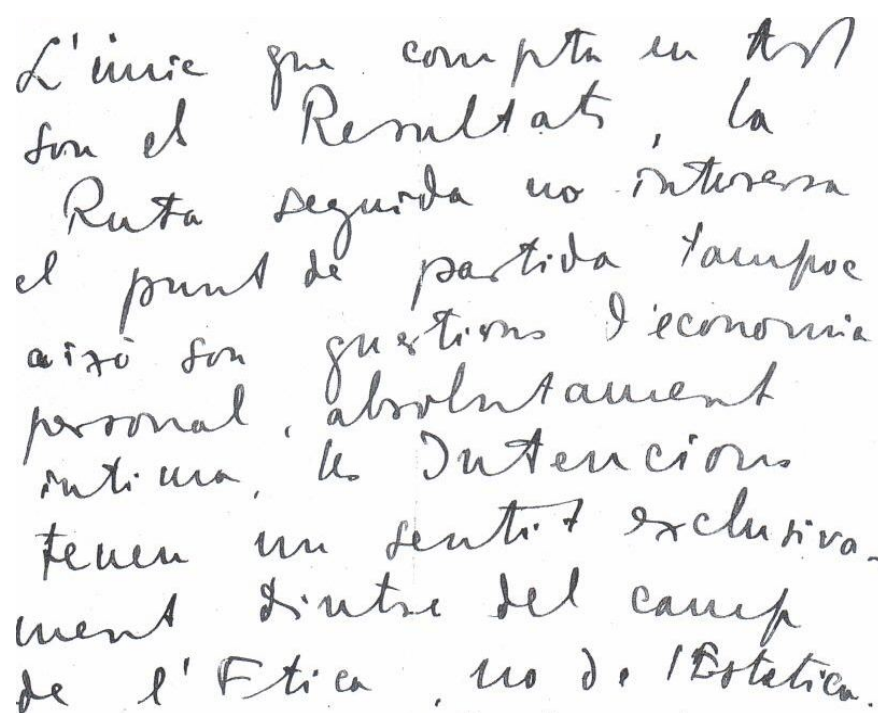 L'únic que compta en Art
son el Resultats, la
Ruta seguida no interessa
el punt de partida tampoc
aixó son questions d'economia
personal, absolutament
intima, les Intencions
tenen un sentit exclusiva-
ment dintre del camp
de l'Etica, no de l'Estetica.